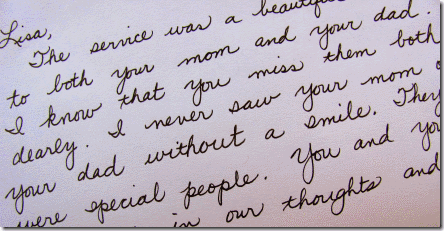 Lisa,
The service was a beautiful
to both your mom and your dad.
I know that you miss them both
dearly. I never saw your mom
your dad without a smile. They
were special people. You and
in our thoughts and